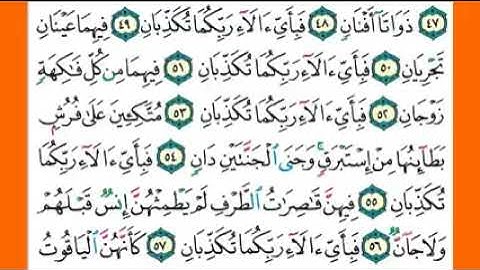 ٤٧ ذَوَاتَآ أَفْنَانٍ ٤٨ فَبِأَيِّ ءَالَآءِ رَبِّكُمَا تُكَذِّبَانِ ٤٩ فِيهِمَا عَيْنَانِ
تَجْرِيَانِ ٥٠ فَبِأَيِّ ءَالَآءِ رَبِّكُمَا تُكَذِّبَانِ ٥١ فِيهِمَا مِن كُلِّ فَٰكِهَةٍ
زَوْجَانِ ٥٢ فَبِأَيِّ ءَالَآءِ رَبِّكُمَا تُكَذِّبَانِ ٥٣ مُتَّكِـِٔينَ عَلَىٰ فُرُشٍۭ
بَطَآئِنُهَا مِنْ إِسْتَبْرَقٍ ۚ وَجَنَى ٱلْجَنَّتَيْنِ دَانٍ ٥٤ فَبِأَيِّ ءَالَآءِ رَبِّكُمَا
تُكَذِّبَانِ ٥٥ فِيهِنَّ قَٰصِرَٰتُ ٱلطَّرْفِ لَمْ يَطْمِثْهُنَّ إِنسٌ قَبْلَهُمْ
وَلَا جَآنٌّ ٥٦ فَبِأَيِّ ءَالَآءِ رَبِّكُمَا تُكَذِّبَانِ ٥٧ كَأَنَّهُنَّ ٱلْيَاقُوتُ